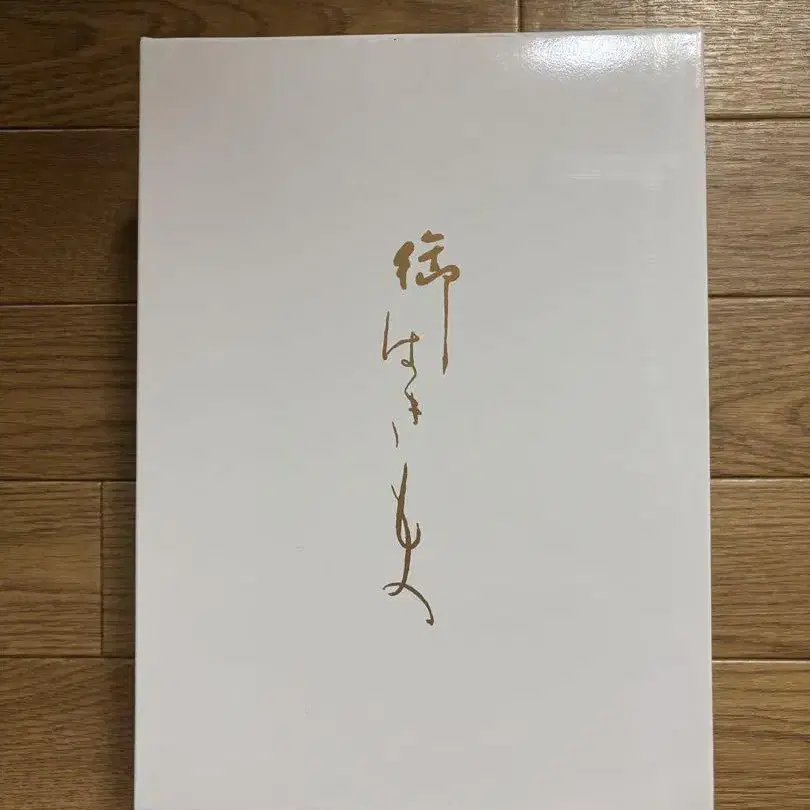 御はきもの